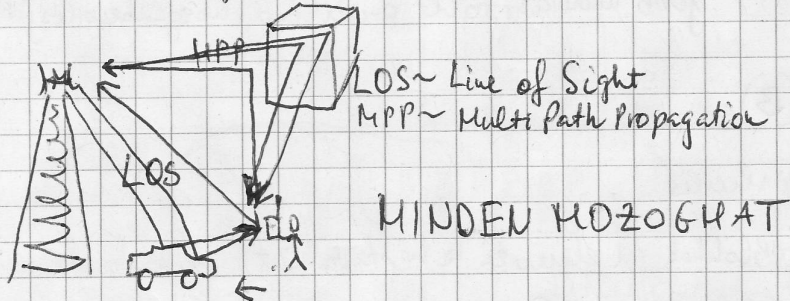 MPP
LOS ~ Line of Sight
MPP ~ Multi Path Propagation
LOS
MINDEN MOZOGHAT